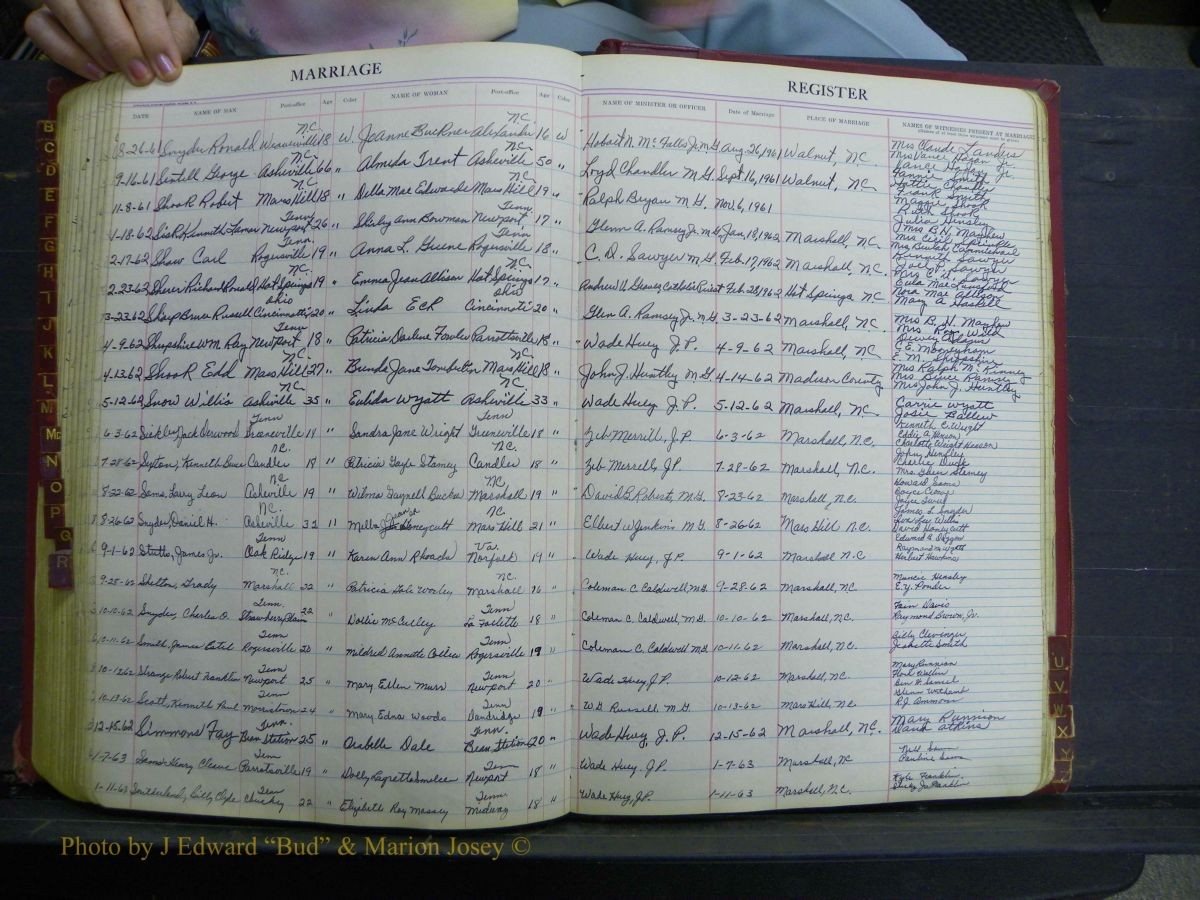 MARRIAGE
REGISTER
DATE NAME OF MAN Post-office Age Color NAME OF WOMAN Post-office Age Color NAME OF MINISTER OR OFFICER Date of Marriage PLACE OF MARRIAGE NAMES OF WITNESSES PRESENT AT MARRIAGE
N.C. N.C.
8-26-61 Snyder Ronald Weaverville 18 W. JoAnne Buckner Alexander 16 W Hobart N. McFalls Jr. M.G. Aug. 26, 1961 Walnut, NC Mrs Claude Landers
N.C. N.C.
9-16-61 Sentell George Asheville 66 " Almida Trent Asheville 50 " Loyd Chandler M G. Sept 16, 1961 Walnut, NC
N.C. N.C.
11-8-61 Shook Robert Mars Hill 18 " Della Mae Edwards Mars Hill 19 " Ralph Bryan M.G. Nov. 6, 1961 Frank Smith
Maggie Shook
Ruth Shook
Tenn Tenn
1-18-62 Sisk Kenneth Newport 26 " Shirley Ann Bowman Newport 17 " Glenn A. Ramsey Jr. M.G. Jan, 18, 1962 Marshall, NC Mrs B.H. Mayhew
Tenn. Tenn
2-17-62 Shaw Carl Rogersville 19 " Anna L. Greene Rogersville 18 " C. D. Sawyer M.G. Feb. 17, 1962 Marshall, NC. Kenneth Sawyer
NC. N.C.
2-23-62 Hot Springs 19 " Emma Jean Allison Hot Springs 17 " Andrew V. Graves Catholic Priest Feb. 23, 1962 Hot Springs NC
Mary B. Haskett
Ohio Ohio
3-23-62 Sharp Bruce Russell Cincinnati 20 " Linda Eck Cincinnati 20 " Glen A. Ramsey Jr. M.G. 3-23-62 Marshall, NC. Mrs B. H. Mayhew
Tenn
4-9-62 Shropshire WM. Ray Newport 18 " Patricia Darlene Fowler Parrottsville 18 " Wade Huey J.P. 4-9-62 Marshall, NC Dewey Adams
C.E. Mooneyham
E. M. Shropshire
NC. NC.
4-13-62 Shook Edd Mars Hill 27 " Brenda Jane Tomberlin Mars Hill 18 " John J. Huntley M.G. 4-14-62 Madison County Mrs Ralph McKinney
Mrs Bruce Ramsey
Mrs John J. Huntley
NC N.C.
5-12-62 Snow Willis Asheville 35 " Eulida Wyatt Asheville 33 " Wade Huey J.P. 5-12-62 Marshall, NC. Carrie Wyatt
Josie Ballew
Tenn Tenn
6-3-62 Jack Greeneville 19 " Sandra Jane Wright Greeneville 18 " Zeb Merrill, J.P. 6-3-62 Marshall, N.C. Kenneth C. Wright
Eddie A. Henson
Charlotte Wright Henson
N.C. N.C.
7-28-62 Sexton, Kenneth Bruce Candler 18 " Patricia Gayle Stamey Candler 18 " Zeb Merrell, J.P. 7-28-62 Marshall, N.C. John Hensley
Charlie Duck
Mrs. Glenn Stamey
N.C NC
8-22-62 Sams, Larry Leon Asheville 19 " Wilma Gaynell Buckner Marshall 19 " David B. Roberts, M.G. 8-23-62 Marshall, N.C. Howard Sams
Boyce George
N.C. NC
8-26-62 Snyder, Daniel H. Asheville 31 " Melba Jeane Honeycutt Mars Hill 21 " Elbert W. Jenkins M.G. 8-26-62 Mars Hill N.C. James L. Snyder
David Honeycutt
Tenn Va.
9-1-62 Stutts, James Jr. Oak Ridge 19 " Karen Ann Rhoades Norfolk 19 " Wade Huey, J.P. 9-1-62 Marshall N.C Raymond M. Wyatt
Herbert Hawkins
N.C. N.C.
9-25-62 Shelton, Grady Marshall 22 " Patricia Gale Worley Marshall 16 " Coleman C. Caldwell M.G. 9-28-62 Marshall, N.C. Muncie Heasley
E.Y. Ponder
Tenn. Tenn
10-10-62 Snyder, Charles O. Strawberry Plain 22 " Dollie McCulley La Follette 18 " Coleman C. Caldwell M.G. 10-10-62 Marshall, N.C. Fain Davis
Raymond Brown, Jr.
Tenn Tenn
10-11-62 Smith, James Estel Rogersville 20 " Mildred Annette Collier Rogersville 19 " Coleman C. Caldwell M.G. 10-11-62 Marshall, N.C. Billy Clevinger
Jeanette Smith
Tenn Tenn
10-12-62 Strange Robert Franklin Newport 25 " Mary Ellen Murr Newport 20 " Wade Huey J.P. 10-12-62 Marshall, N.C. Mary Runnion
Tenn Tenn
10-13-62 Scott, Kenneth Paul Morristown 24 " Mary Edna Woods Dandridge 19 " W. G. Russell M.G. 10-13-62 Mars Hill, N.C. R.J. Ammons
Tenn. Tenn.
12-15-62 Simmond Fay Bean Station 25 " Arabelle Dale Bean Station 20 " Wade Huey, J.P. 12-15-62 Marshall, N.C. Mary Runnion
David Atkins
Tenn Tenn
1-7-63 Sams Henry Cleave Parrotsville 19 " Dolly Newport 18 " Wade Huey J.P. 1-7-63 Marshall, N.C Nell Sams
Pauline Sams
Tenn Tenn.
1-11-63 Southerland, Billy Clyde Chuckey 22 " Elizabeth Kay Massey Midway 18 " Wade Huey, J.P. 1-11-63 Marshall, N.C. Kyle Franklin
B
C
D
E
F
G
H
I
J
K
L
M
Mc
N
O
P
Q
R
U
V
W
X
Y
Z
Photo by J Edward “Bud” & Marion Josey ©